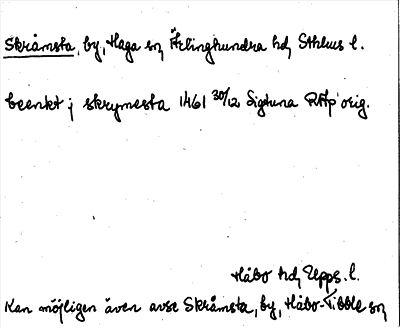 Skråmsta, by, Haga sn, Ärlinghundra hd, Sthlms l.
beenkt j skrymesta 1461 30/12 Sigtuna RAp orig.
Håbo hd, Upps. l.
Kan möjligen även avse Skråmsta, by, Håbo-Tibble sn